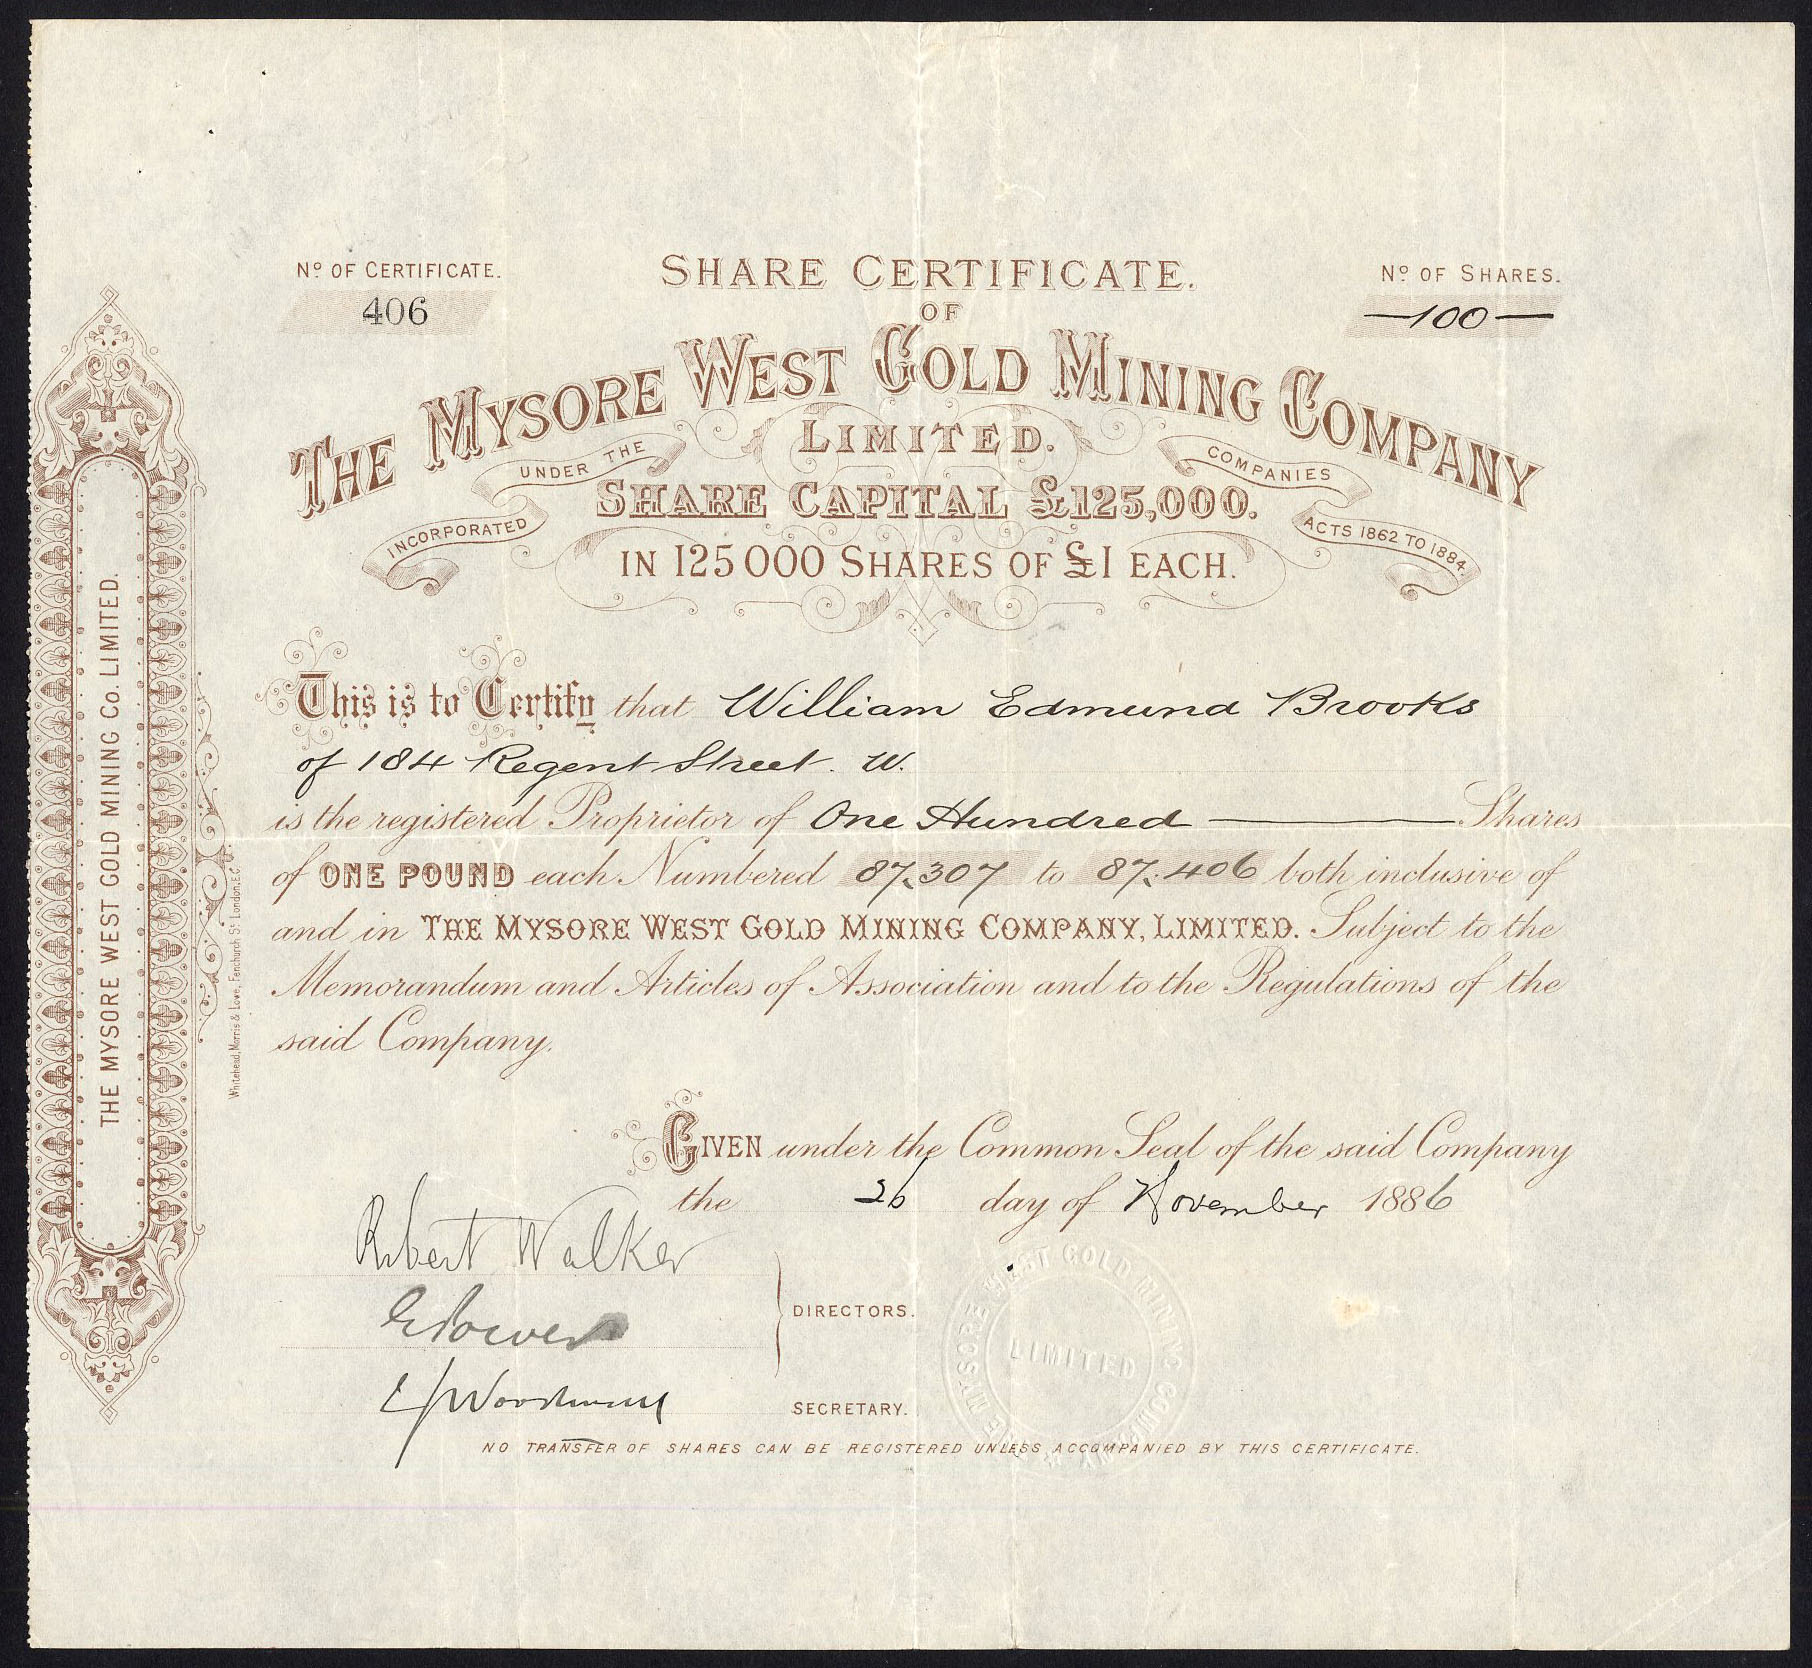 Nº OF CERTIFICATE.
406
SHARE CERTIFICATE.
Nº OF SHARES.
—100—
OF
THE MYSORE WEST GOLD MINING COMPANY
LIMITED.
INCORPORATED UNDER THE COMPANIES ACTS 1862 TO 1884.
SHARE CAPITAL £125,000.
IN 125000 SHARES OF £1 EACH.
This is to Certify that William Edmund Brooks
of 184 Regent Street. W.
is the registered Proprietor of One Hundred ——— Shares
of ONE POUND each Numbered 87,307 to 87,406 both inclusive of
and in THE MYSORE WEST GOLD MINING COMPANY, LIMITED. Subject to the
Memorandum and Articles of Association and to the Regulations of the
said Company.
GIVEN under the Common Seal of the said Company
the 26 day of November 1886
Robert Walker
DIRECTORS.
SECRETARY.
NO TRANSFER OF SHARES CAN BE REGISTERED UNLESS ACCOMPANIED BY THIS CERTIFICATE.
THE MYSORE WEST GOLD MINING COMPANY
LIMITED
THE MYSORE WEST GOLD MINING Co. LIMITED.
Whitehead, Morris & Lowe, Fenchurch St. London, E.C.